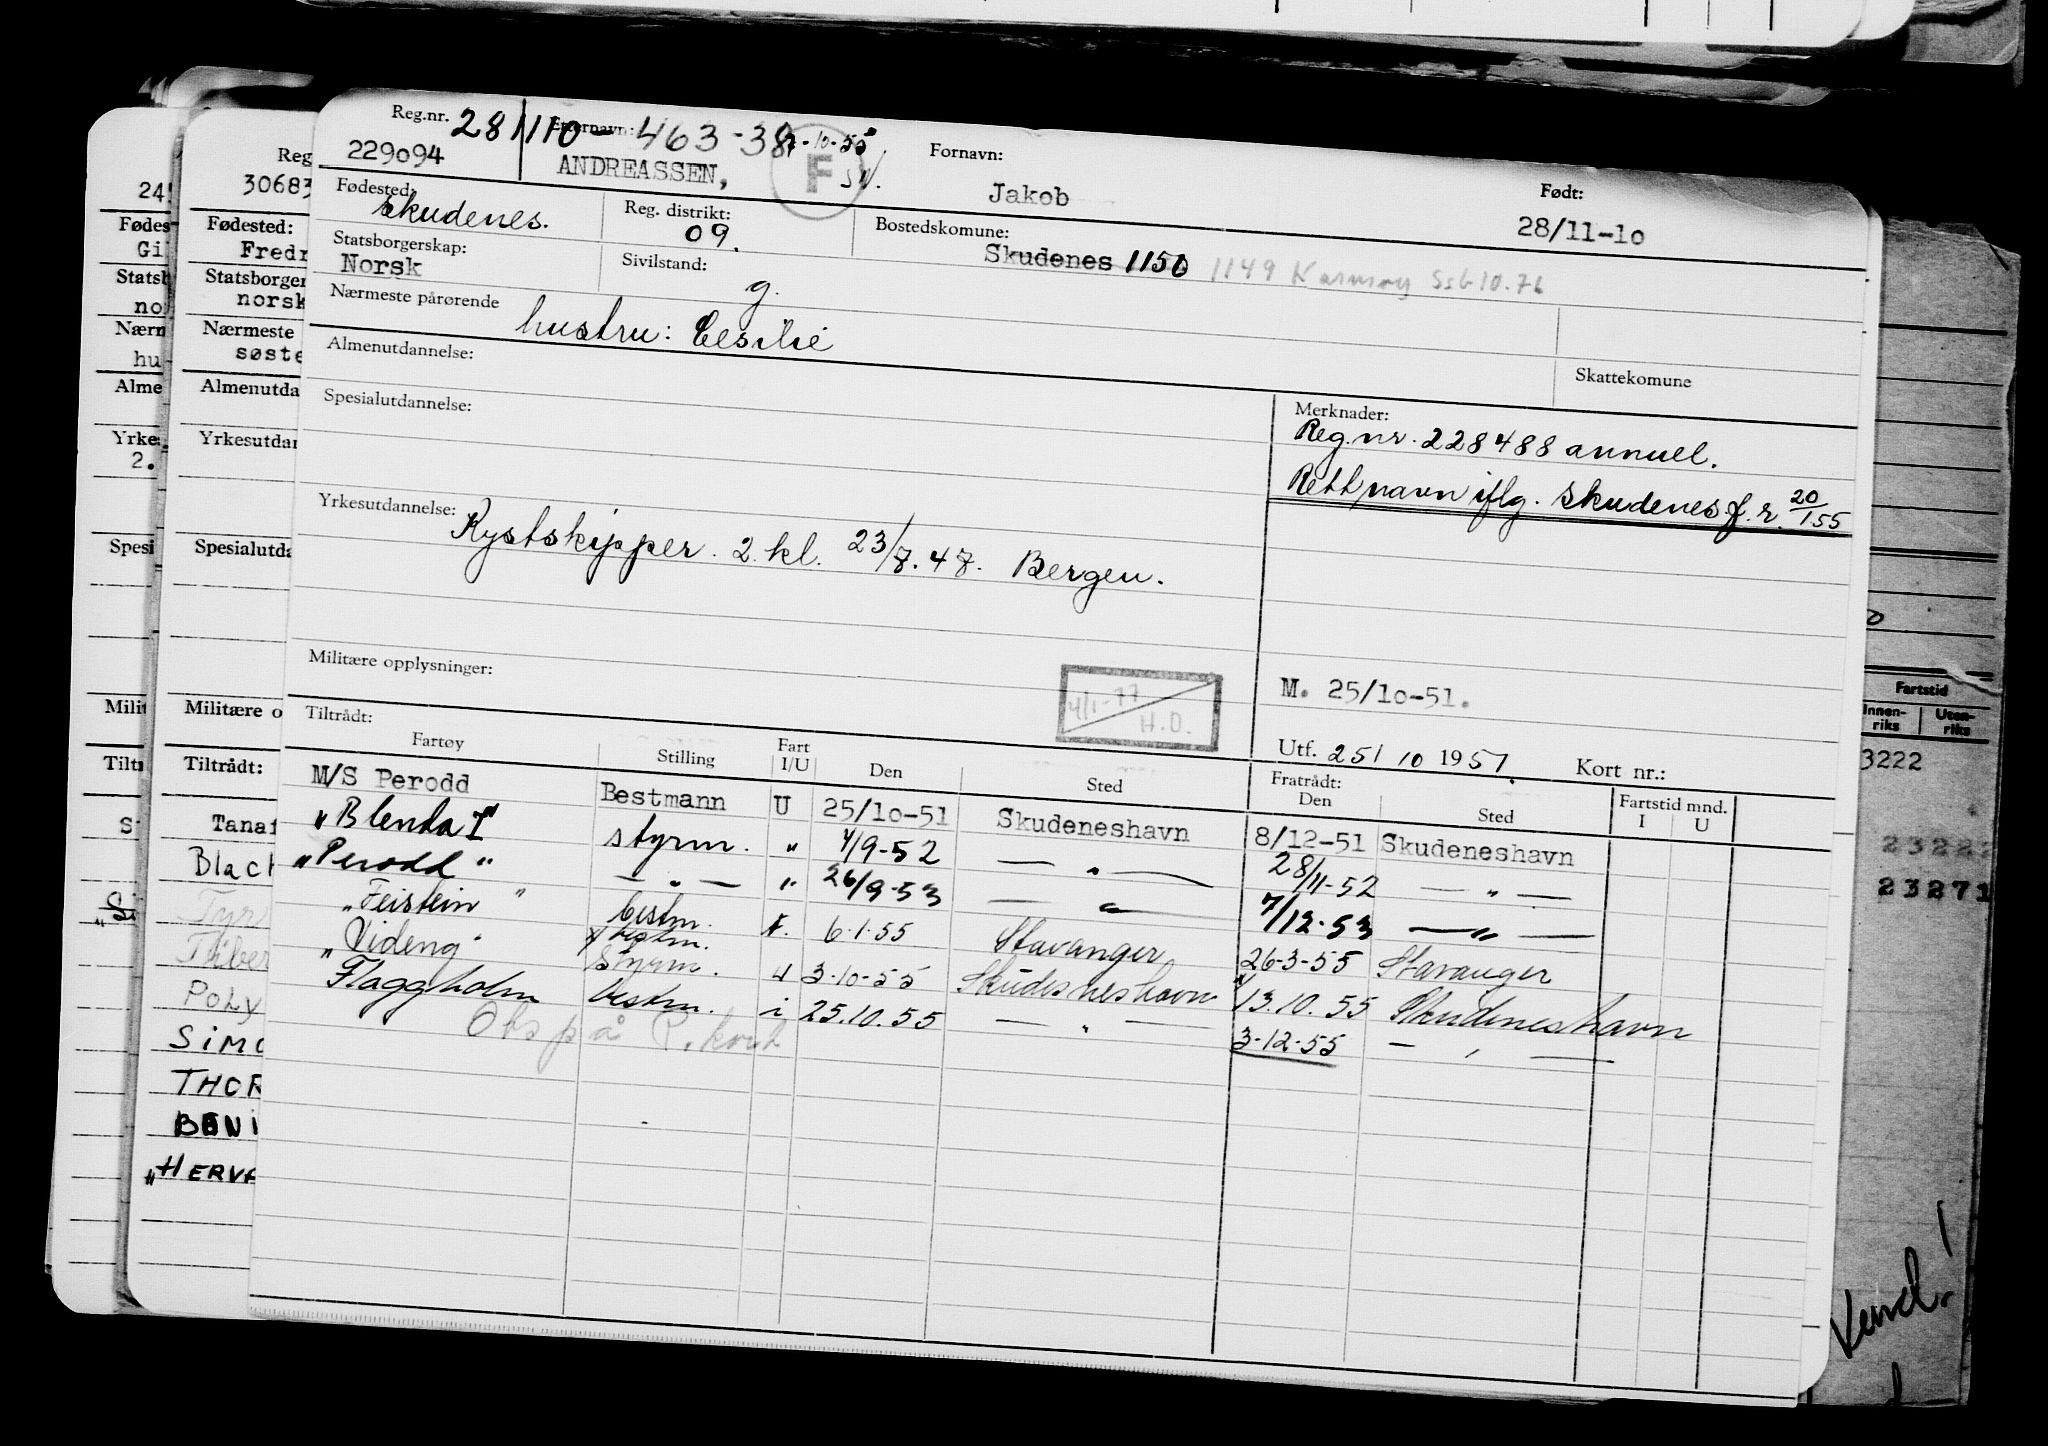 Reg.nr. 28/1110-463-38 Etternavn: 7-10-55 Fornavn: Født:
229094 ANDREASSEN, F SW. Jakob 28/11-10
Fødested: Skudenes. Reg. distrikt: 09. Bostedskomune: Skudenes 1150 1149 Karmøy Ssb 10.76
Statsborgerskap: Norsk Sivilstand: g.
Nærmeste pårørende hustru: Cesilie
Almenutdannelse: Skattekomune
Spesialutdannelse: Merknader:
Reg.nr. 228488 annull.
Rett navn iflg. Skudenes f.r. 20/1 55
Yrkesutdannelse: Kystskipper. 2. kl. 23/7.47. Bergen.
Militære opplysninger: 4/1-77 H.O. M. 25/10-51.
Tiltrådt: Utf. 25/10 1951. Kort nr.:
Fartøy Stilling Fart I/U Den Sted Fratrådt: Den Sted Fartstid mnd. I U
M/S Perodd Bestmann U 25/10-51 Skudeneshavn 8/12-51 Skudeneshavn
"Blenda I" styrm. " 4/9-52 — " — 28/11-52 — " —
"Perodd" — " — " 26/9-53 — " — 7/12-53 — " —
"Feistein" bestm. 6-1-55 Stavanger 26-3-55 Stavanger
"Videng" bestm. styrm. 3-10-55 Skudesneshavn 13.10.55 Skudeneshavn
Flaggholm bestm. i 25.10.55 — " — 3-12-55 — " —
Obs på P.kort
24
Fødes
Gi
Stats
no
Nærm
hu
Alme
Yrke
2.
Spesi
Milit
Tiltr
Reg
30683
Fødested:
Fredr
Statsborger
norsk
Nærmeste
søste
Almenutda
Yrkesutdan
Spesialutda
Militære o
Tiltrådt:
Tana
Black
Tyr
Tiber
Poly
SIMO
THOR
BENI
"HERVA
Fartstid
Innen-riks Uten-riks
3222
23222
23271
Vend!